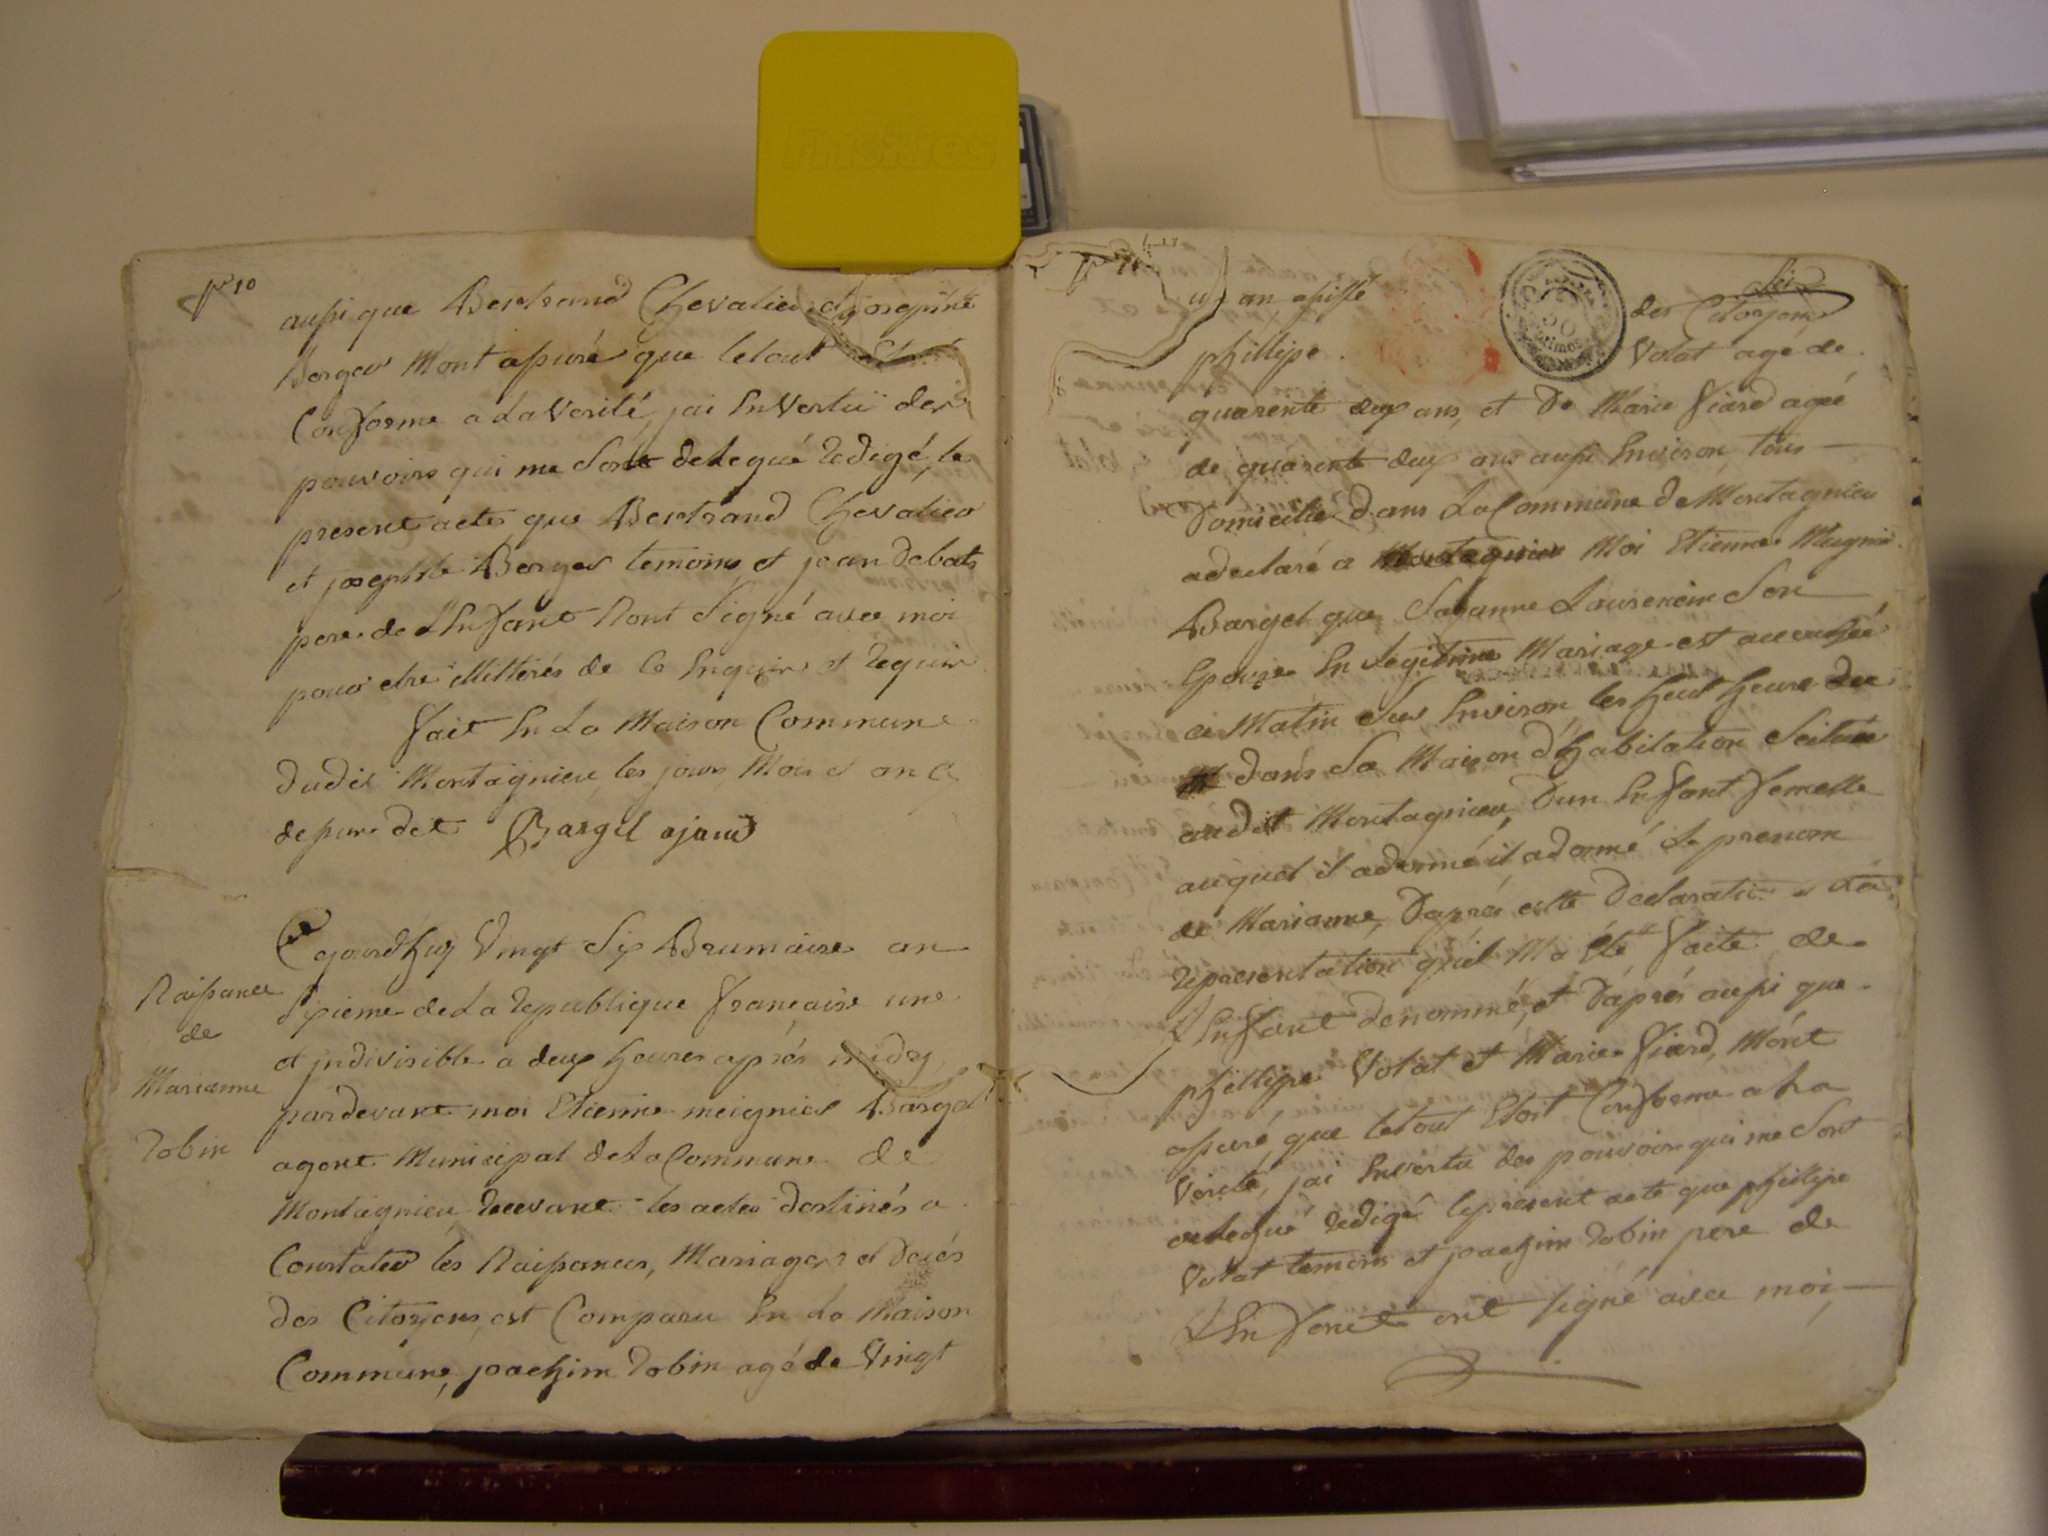 po 10
aussi que Bertrand Chevalier et josephte
Berger Mont assuré que letout Etoit
Conforme a La Verité, jai En Vertu des
pouvoirs qui me Sont delegué redigé, le
present acte, que Bertrand Chevalier
et josephte Berger temoins, et jean debats
pere de L'Enfant Nont Signé avec moi
pour etre illittérés de Ce Enquis et requis
fait En La Maison Commune
dudit Montagnieu, les jour, Mois et an Cy
dessus dit Bargel ajant
Naissance
de
Marianne
robin
Cejourdhuy Vingt Six Brumaire an
Sixieme de La republique francaise une
et jndivisible a deux heures après midy,
pardevant moi Etienne meignier Bargel
agent Municipal de La Commune de
Montagnieu recevant les actes destinés a
Constater les Naissances, Mariages et Decés
des Citoyens, est Comparu En La Maison
Commune, joachim robin agé de Vingt
Six
un an assisté des Citoyens
phillipe Volat agé de
quarente deux ans, et De Marie fiard agée
de quarente deux ans aussi Environ, tous
Domicilié dans La Commune de Montagnieu
adeclaré a Moi Etienne Meignié
Bargel que Suzanne Laurencin Son
Epouse En Legitime Mariage est accouchée
ce Matin Sur Environ les huit heure Du
dans Sa Maison d'habitation Scituée
audit Montagnieu, D'un Enfant femelle
auquel il adonné il adonné Le prenom
de Marianne, Daprés cette Declaration et La
representation qu'il M'a Eté faite de
L'Enfant denommé, et D'aprés aussi que
phillipe Volat et Marie fiard, M'ont
assuré, que letout Etoit Conforme a La
Verité, jai Envertu des pouvoirs qui me Sont
delegué redigé lepresent acte que phillipe
Volat temoins et joachim robin pere de
L'Enfant ont signé avec moi,